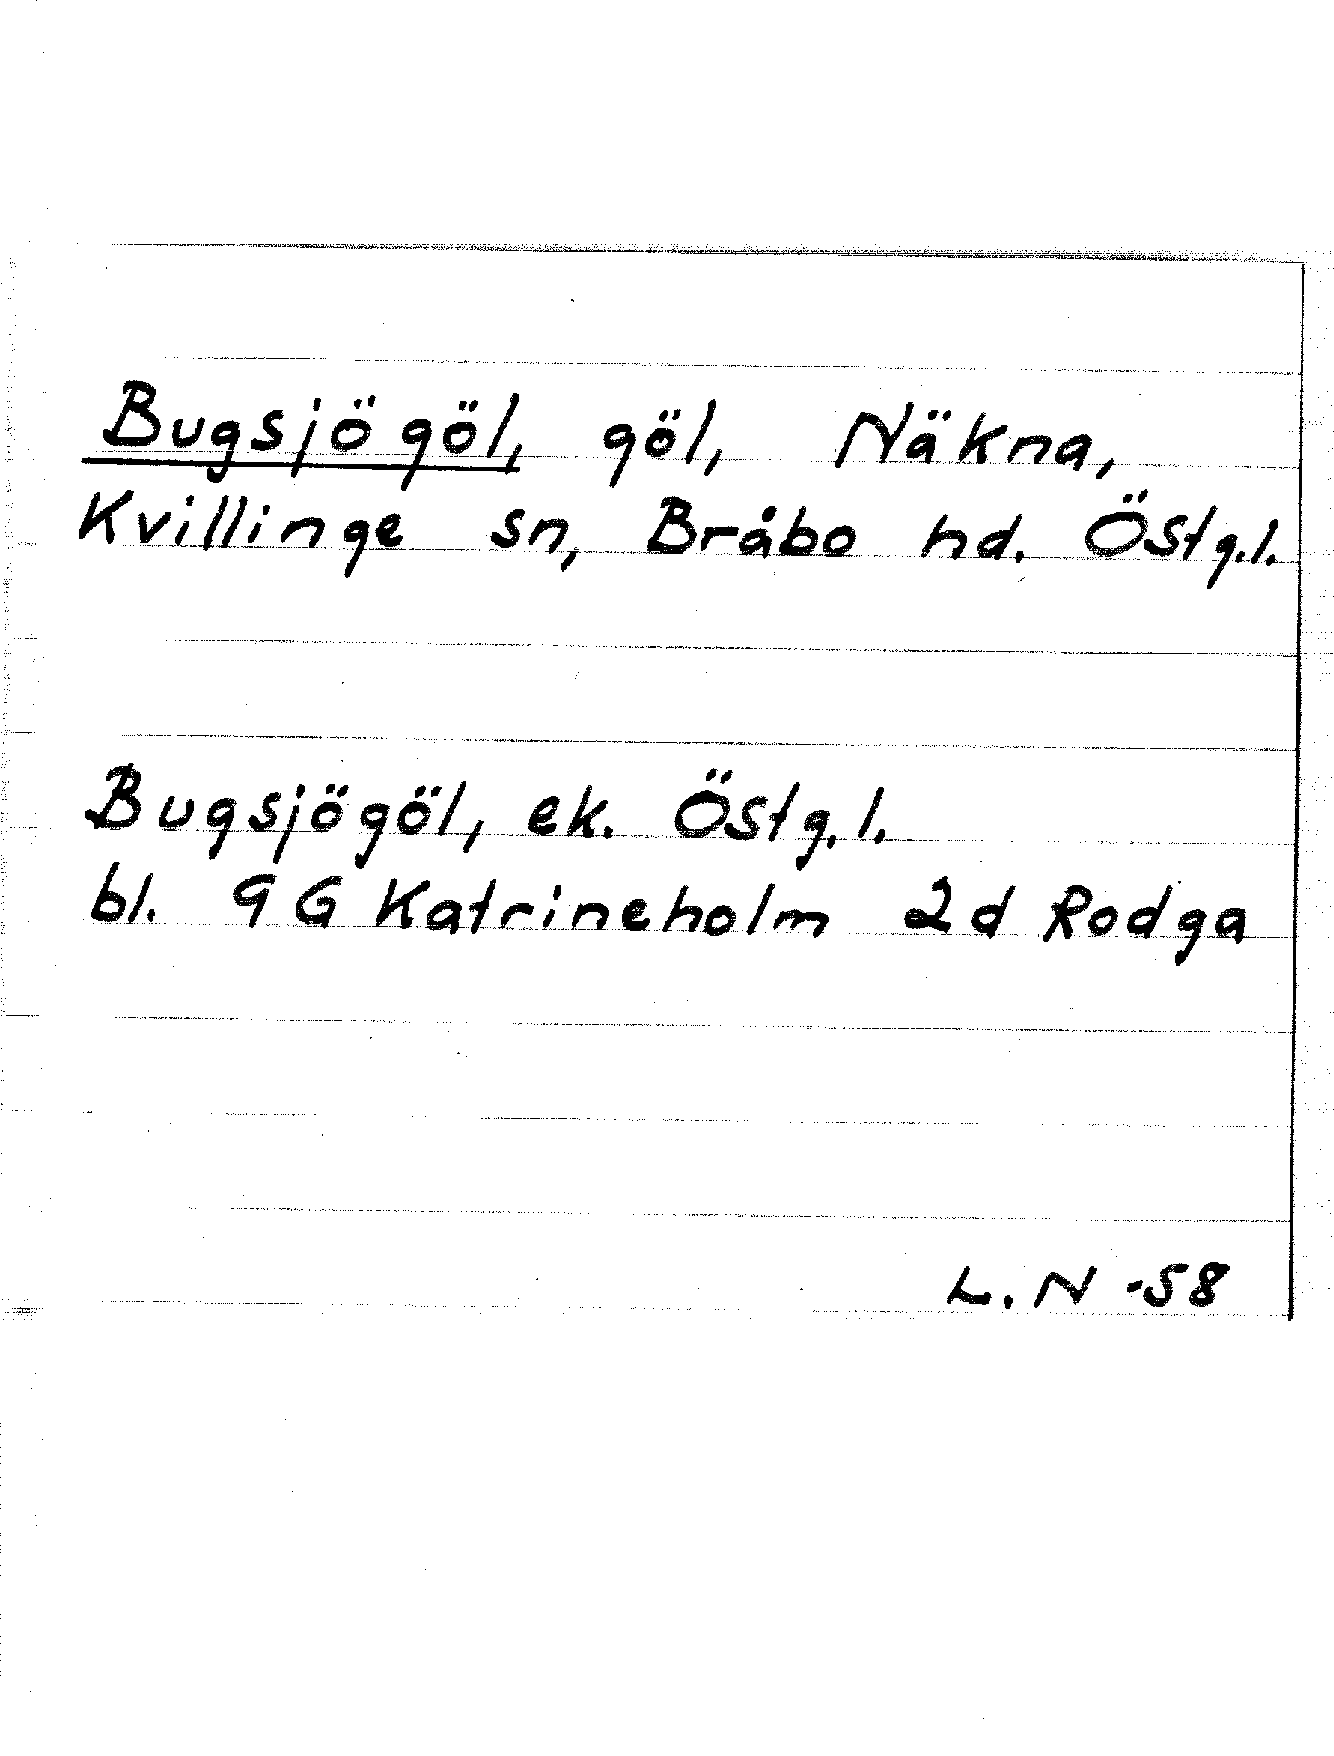 Bugsjögöl, göl, Näkna,
Kvillinge sn, Bråbo hd. Östg.l.
Bugsjögöl, ek. Östg.l.
bl. 9G Katrineholm 2d Rodga
L.N -58